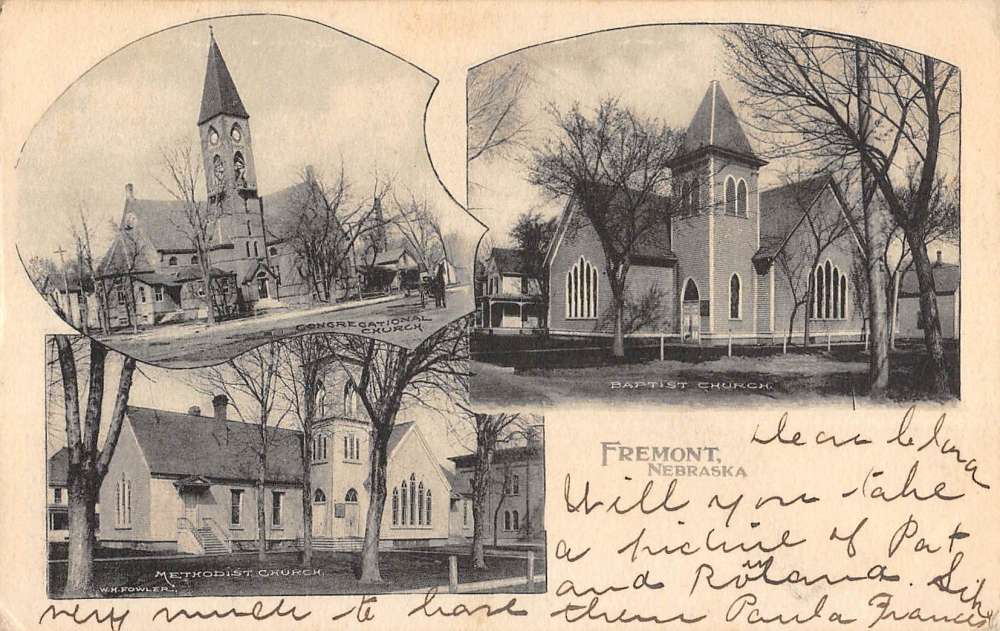 CONGREGATIONAL
CHURCH
BAPTIST CHURCH.
METHODIST CHURCH.
W.H. FOWLER.
FREMONT,
NEBRASKA
Dear Clara
Will you take
a picture of Pat
and Roland.
very much to have them Paula Frances